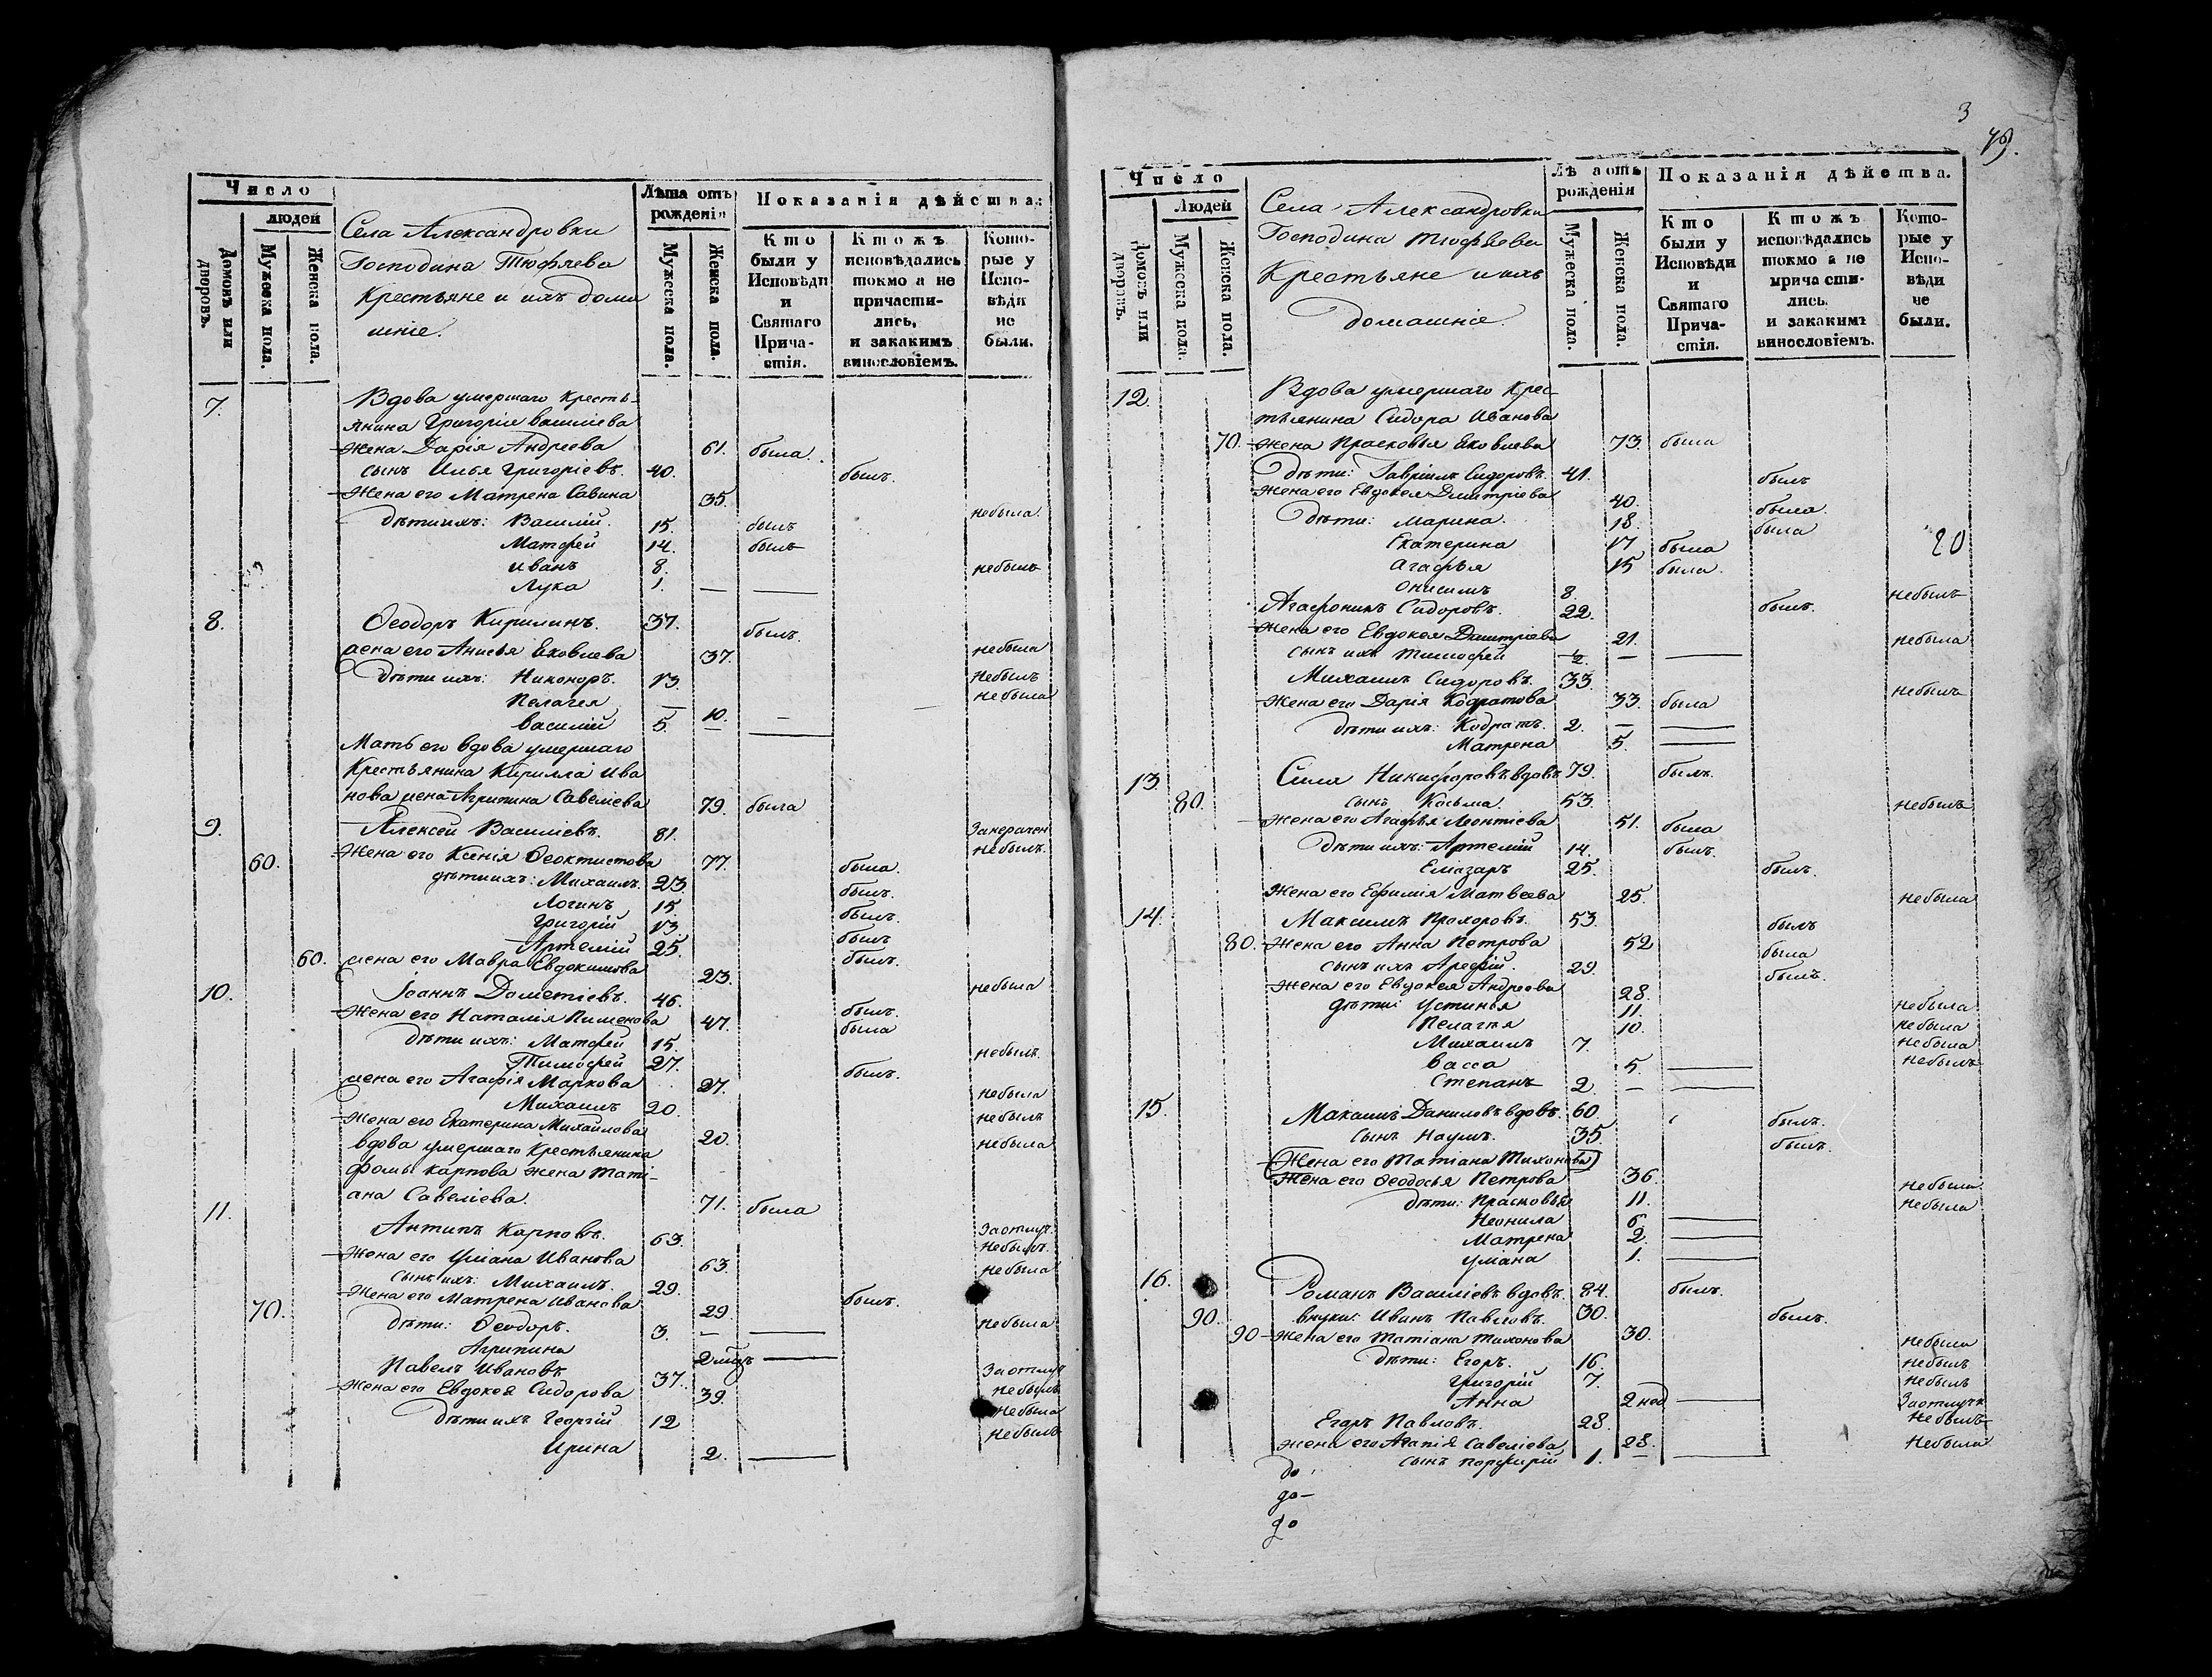 Число
людей
Домовъ или дворовъ.
Мужеска пола.
Женска пола.
Села Александровки
Господина Тюфяева
Крестьяне и ихъ дома
шніе.
Лѣта отъ рожденія
Мужеска пола.
Женска пола.
Показанія дѣйства:
Кто были у Исповѣди и Святаго Причастія.
Ктожъ исповѣдались токмо а не причастились, и закакимъ винословіемъ.
Которые у Исповѣди не были.
7. Вдова умершаго Кресть-
янина Григорія Василіева
жена Дарія Андреева 61. была.
сынъ Илья Григоріевъ. 40. былъ.
Жена его Матрена Савина 35. небыла.
дѣти ихъ: Василій. 15. былъ
Матфей 14. былъ
Иванъ 8. небылъ
Лука 1. — —
8. Ѳеодоръ Кирилинъ. 37. былъ.
жена его Анисья Яковлева 37. небыла
Дѣти ихъ: Никоноръ. 13. небылъ
Пелагея — 10. — небыла
Василій 5. — —
Мать его вдова умершаго
Крестьянина Кирилла Ива
нова жена Агрипина Савеліева 79. была
9. Алексей Василіевъ. 81. небылъ.
60. Жена его Ксенія Ѳеоктистова 77. была.
дѣти ихъ: Михаилъ. 23 былъ.
Логинъ 15 былъ.
Григорій 13. былъ
Артемій 25. былъ.
60. жена его Мавра Евдокимова 23. небыла
10. Іоаннъ Дометіевъ. 46. былъ.
Жена его Наталія Пименова 47. была
Дѣти ихъ: Матфей 15. небылъ.
Тимофей 27. былъ.
жена его Агафія Маркова 27. небыла
Михаилъ 20. небылъ
Жена его Екатерина Михайлова 20. небыла
вдова умершаго Крестьянина
Фомы Карпова жена Тати-
ана Савеліева. 71. была
11. Антипъ Карповъ. 63. Заотлуч. небылъ.
Жена его Уліана Иванова 63. небыла
сынъ ихъ: Михаилъ. 29. былъ.
70. Жена его Матрена Иванова 29. небыла
Дѣти: Ѳеодоръ. 3. — —
Агрипина —
Павелъ Ивановъ 37. Заотлуч небылъ
Жена его Евдокея Сидорова 39. небыла
Дѣти ихъ Георгій 12 небылъ
Ирина 2. —
3
79.
Число
Людей
Домовъ или дворовъ.
Мужеска пола.
Женска пола.
Села Александровки
Господина Тюфяева
Крестьяне и ихъ
домашніе.
Лѣ а отъ рожденія
Мужеска пола.
Женска пола.
Показанія дѣйства.
Кто были у Исповѣди и Святаго Причастія.
Ктожъ исповѣдались токмо а не причастились. и закакимъ винословіемъ.
Которые у Исповѣди не были.
12. Вдова умершаго Крес-
тьянина Сидора Иванова
70. жена Прасковья Яковлева 73. была
Дѣти: Гавріилъ Сидоровъ. 41. былъ
Жена его Евдокея Дмитріева 40. была.
Дѣти: Марина. 18. была
Екатерина 17 была 20
Агафья 15 была.
Онисимъ 8. небылъ
Агафоникъ Сидоровъ. 22. былъ.
Жена его Евдокея Дмитріева 21. небыла
сынъ ихъ Тимофей ½. — —
Михаилъ Сидоровъ. 33. небылъ
Жена его Дарія Кодратова 33. была
дѣти ихъ: Кодратъ. 2. — —
Матрена 5. —
13. Сила Никифоровъ вдовъ 79. былъ.
80. сынъ Косьма. 53. небылъ
Жена его Агафья Леонтіева 51. была
Дѣти ихъ: Артемій 14. былъ.
Еліазаръ 25. былъ.
Жена его Ефимія Матвеева 25. небыла
14. Максимъ Прохоровъ. 53. былъ
80. Жена его Анна Петрова 52 была
сынъ ихъ Арефій. 29. былъ.
Жена его Евдокея Андреева 28. небыла
Дѣти: Устинья 11. небыла
Пелагея 10. небыла
Михаилъ 7. небылъ
Васса 5. —
Степанъ 2 — —
15. Макаилъ Даниловъ вдовъ. 60. былъ.
сынъ Наумъ. 35. былъ.
(Жена его Татіана Тихонова)
Жена его Ѳеодосья Петрова 36. небыла
дѣти: Прасковья 11. небыла
Неонила 6 —
Матрена 2. —
Уліана 1. —
16. Романъ Василіевъ вдовъ. 84. былъ.
90. внуки: Иванъ Павловъ. 30. былъ.
90 Жена его Татіана Тихонова 30. небыла
Дѣти: Егоръ. 16. небылъ
Григорій 7. небылъ
Анна 2 нед —
Егоръ Павловъ. 28. Заотлучк небылъ
жена его Агапія Савеліева 28. небыла
сынъ Порфирій 1. — —
до
до —
до